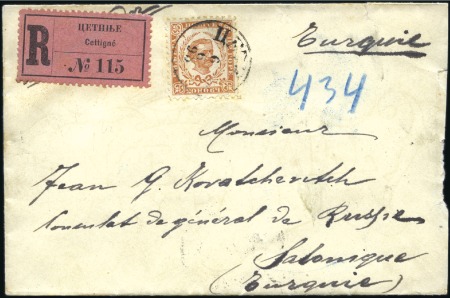 ЦЕТИЊЕ
Cettigné
R
№ 115
Turquie
434
Monsieur
Jean G. Kovatchevitch
Consulat de général de Russie
Salonique
(Turquie)